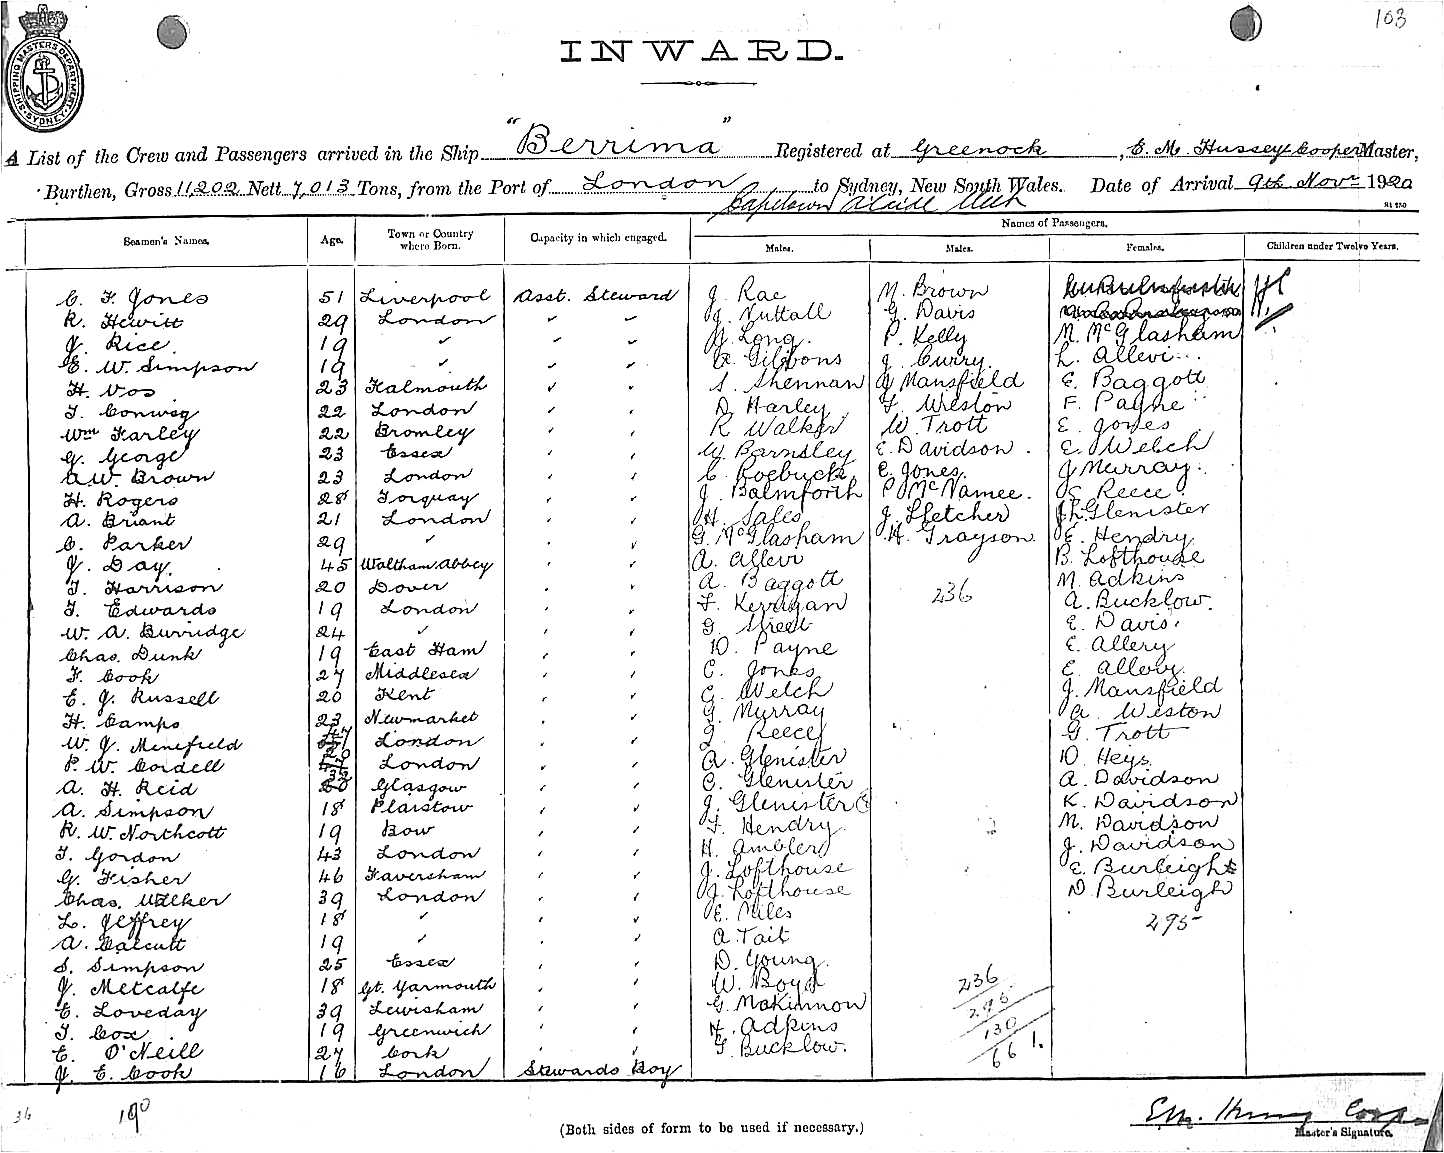 103
SHIPPING MASTERS DEPARTMENT SYDNEY
INWARD.
A List of the Crew and Passengers arrived in the Ship "Berrima" Registered at Greenock, E. M. Hussey Cooper Master,
Burthen, Gross 11,202 Nett 7,013 Tons, from the Port of London to Sydney, New South Wales. Date of Arrival 9th Novr 1920
Capetown
Seamen's Names. Age. Town or Country where Born. Capacity in which engaged. Names of Passengers.
Males. Males. Females. Children under Twelve Years.
C. F. Jones 51 Liverpool Asst. Steward J. Rae M. Brown
R. Hewitt 29 London " " J. Nuttall G. Davis
J. Rice 19 " " " Long P. Kelly M. McGlasham
E. W. Simpson 19 " " " Gibbons J. Curry L. Allevi
H. Vos 23 Falmouth " " S. Shennan Mansfield E. Baggott
T. Conway 22 London " " D. Harley F. Weston F. Payne
Wm Farley 22 Bromley " " R. Walker W. Trott E. Jones
G. George 23 Essex " " W. Barnsley E. Davidson E. Welch
A. W. Brown 23 London " " C. Roebuck E. Jones J. Murray
H. Rogers 28 Torquay " " J. Balmforth P. McNamee E. Reece
A. Briant 21 London " " H. Sales J. Fletcher J. L. Glenister
C. Parker 29 " " " G. McGlasham H. Grayson E. Hendry
J. Day 45 Waltham Abbey " " A. Allevi B. Lofthouse
T. Harrison 20 Dover " " A. Baggott 236 M. Adkins
T. Edwards 19 London " " F. Kerrigan A. Bucklow
W. A. Burridge 24 " " " G. Street E. Davis
Chas. Dunk 19 East Ham " " D. Payne E. Allery
F. Cook 27 Middlesex " " C. Jones E.
E. J. Russell 20 Kent " " G. Welch J. Mansfield
H. Camps 23 Newmarket " " G. Murray A. Weston
W. J. Minefield 47 London " " J. Reece G. Trott
P. W. Cordell 20 London " " A. Glenister D. Heys
A. H. Reid 35 Glasgow " " C. Glenister A. Davidson
A. Simpson 18 Plaistow " " J. Glenister K. Davidson
R. W. Northcott 19 Bow " " F. Hendry M. Davidson
T. Gordon 43 London " " H. Ambler J. Davidson
G. Fisher 46 Faversham " " J. Lofthouse E. Burleigh
Chas. Walker 39 London " " J. Lofthouse D. Burleigh
L. Jeffrey 18 " " " E. Miles 295
A. Calcutt 19 " " " A. Tait
S. Simpson 25 Essex " " D. Young
J. Metcalfe 18 Gt. Yarmouth " " W. Boyd 236
E. Loveday 39 Lewisham " " G. McKinnon 295
T. Cox 19 Greenwich " " H. Adkins 130
E. O'Neill 27 Cork " " F. Bucklow 661.
J. E. Cook 16 London Stewards Boy
36 190
(Both sides of form to be used if necessary.)
Master's Signature.